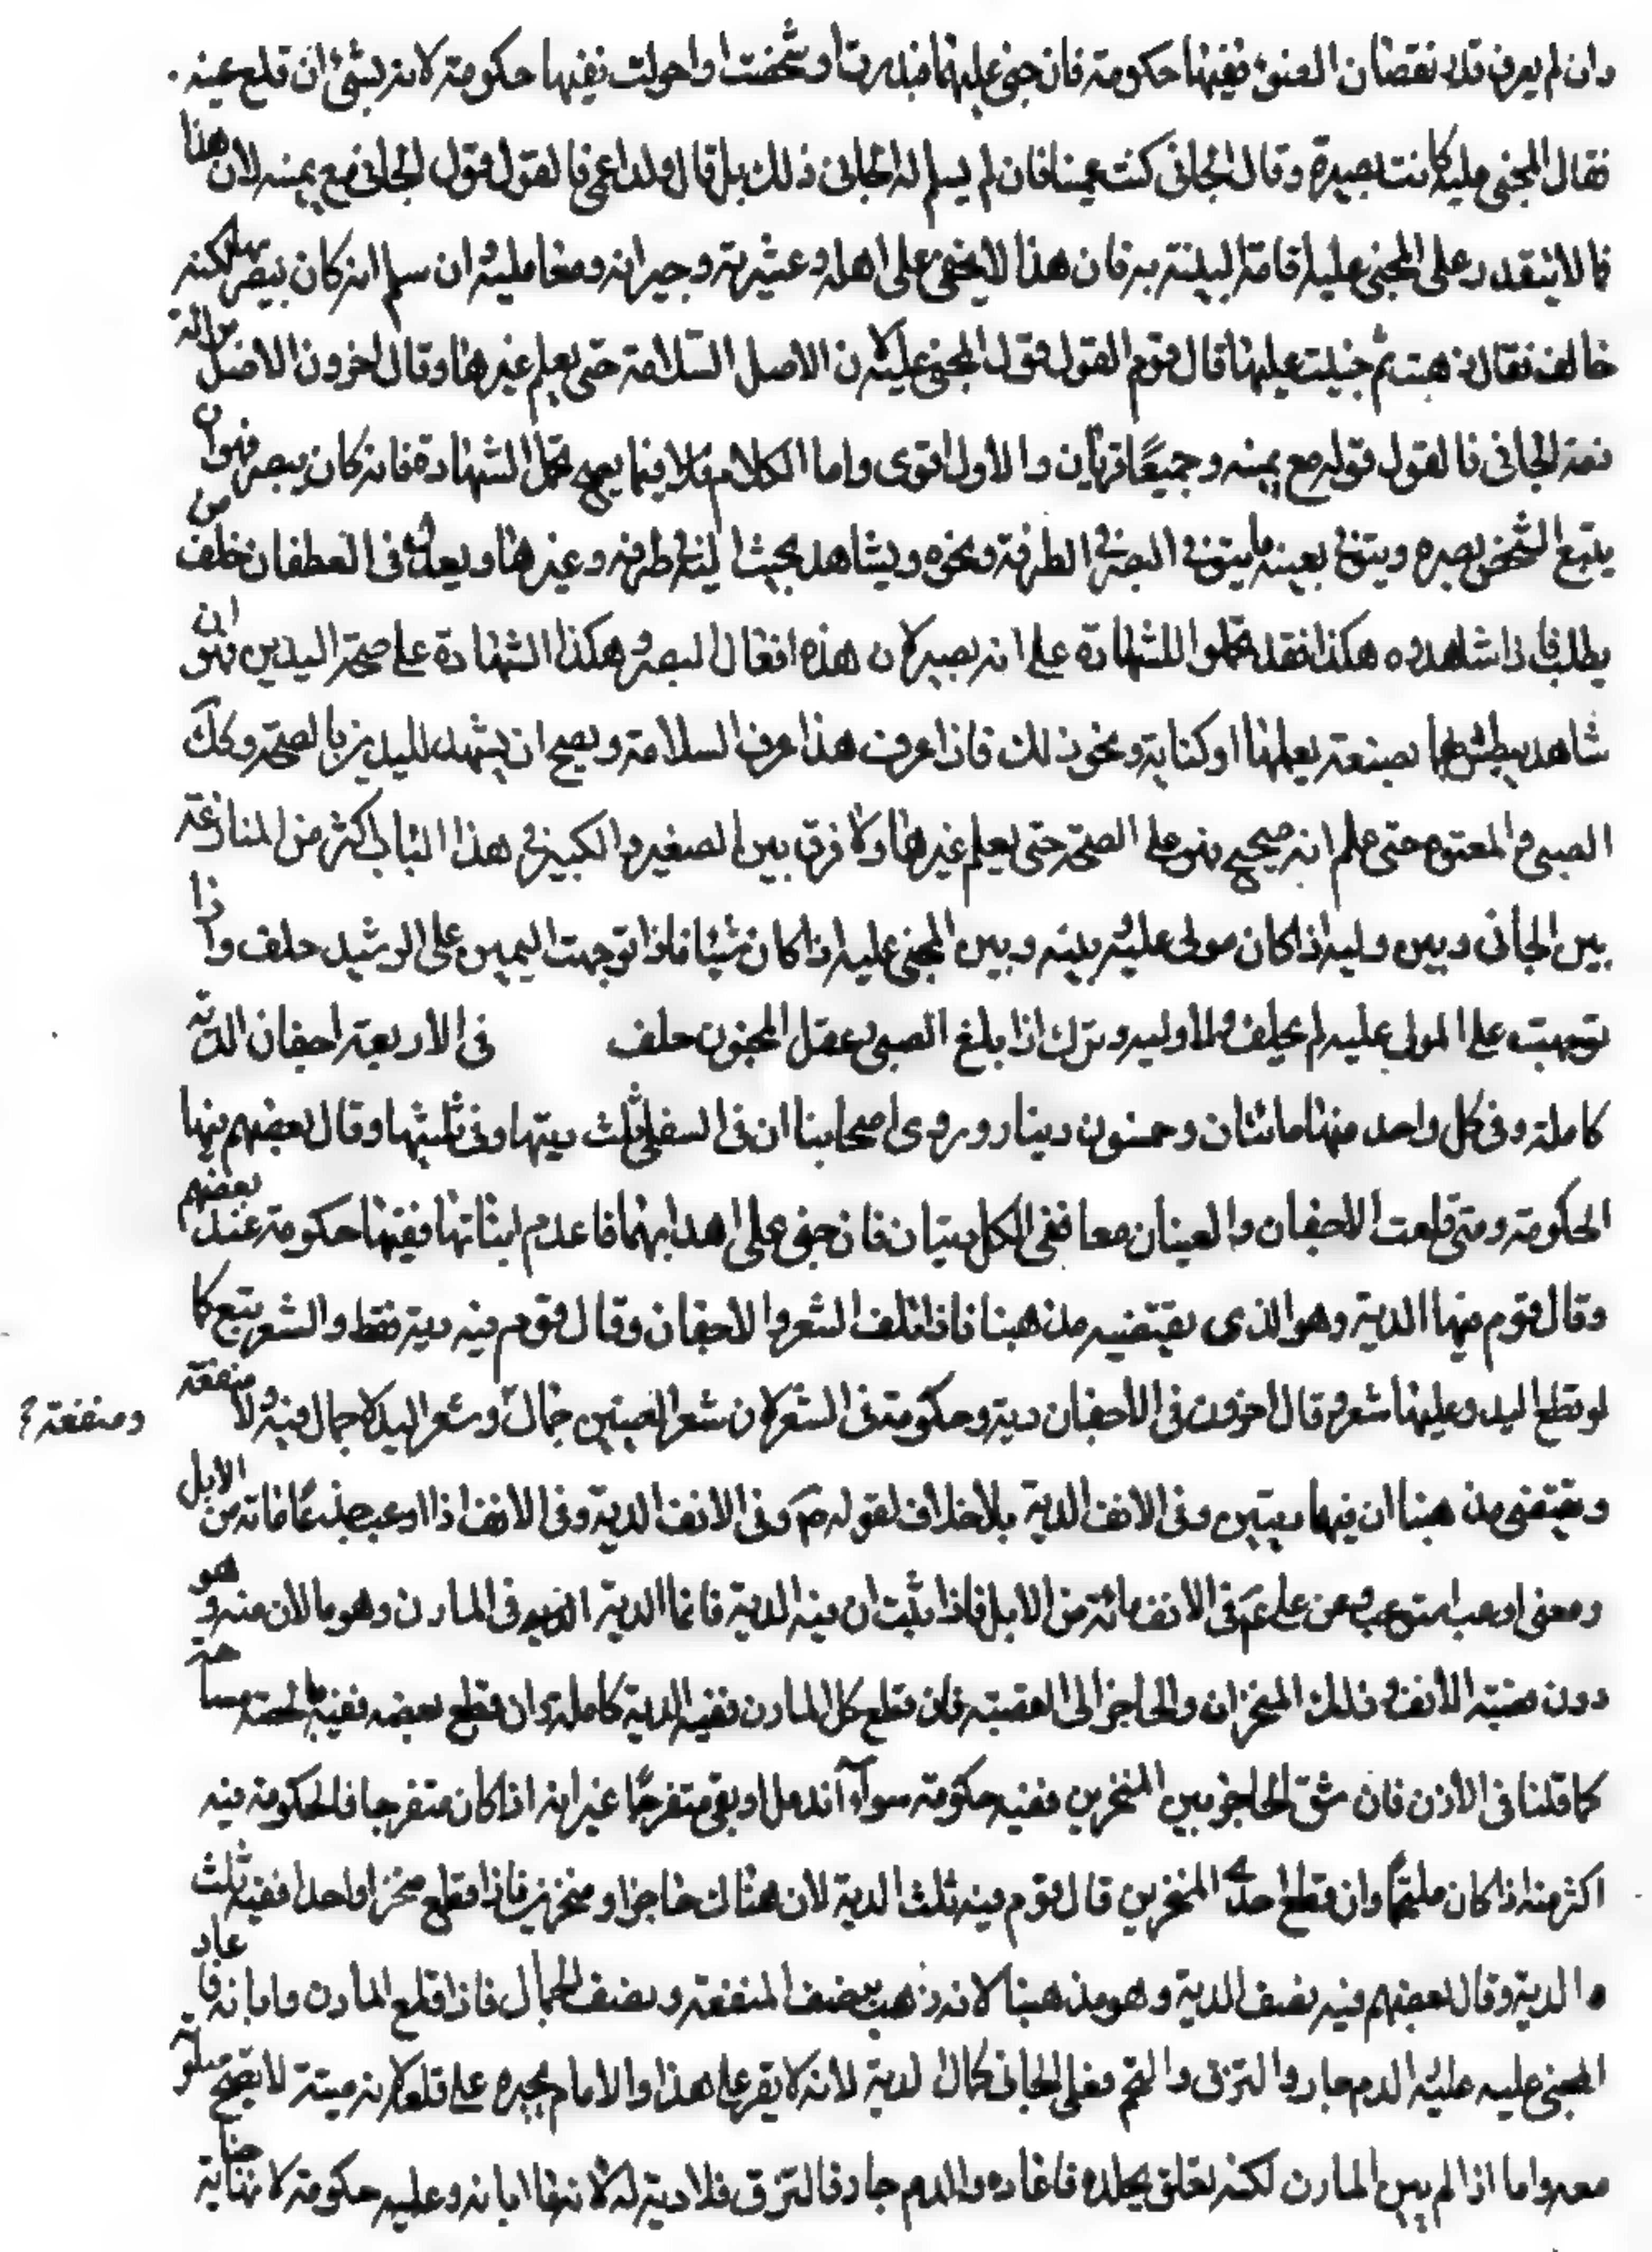 وان لم يعرف قدر نقصان الضوء ففيها حكومة فان جنى عليها فندرت او شخصت او احولت ففيها حكومة لانه بشئ ان قلع عينه
فقال المجنى عليه كانت بصيرة وقال الجانى كنت عمينا فان لم يسلم له الجانى ذلك بل قال ولد اعمى فالقول قول الجانى مع يمينه لان هذا
فما لا يتعذر على المجنى عليه اقامة البينة به فان هذا لا يخفى على اهله وعشيرته وجيرانه ومعامليه ان سلم انه كان يبصر بها لكنه
خالف فقال ذهبت ثم جنيت عليها قال قوم القول قول المجنى عليه لان الاصل السلامة حتى يعلم غيرها وقال اخرون الاصل براءة
ذمة الجانى فالقول قوله مع يمينه وجميعًا قريبان والاول اقوى واما الكلام فلا فيما يصح تحمل الشهادة فانه كان يبصر فهو ان
يتبع الشخص بصره ويتوقى بعينه ما يتوقى البصير فى الطرفة ونحوه ويشاهد بحيث لينظر طرفه وغيرها ويعدل فى العطفان خلف من
يطلب فاذا شاهدوه هكذا فقد تحملوا للشهادة على انه بصير لان هذه افعال البصير وهكذا الشهادة على صحة اليدين فهو ان
شاهد يبطش بها بصنعة يعملها او كتابة ونحو ذلك فاذا عرف هذا عرف السلامة ويصح ان يشهد لليدين بالصحة وكك
الصبى والمعتوه حتى علم انه صحيح فهو على الصحة حتى يعلم غيرها ولا فرق بين الصغير والكبير فى هذا الباب اكثر من المنازعة
بين الجانى وبين وليه اذا كان مولى عليه بينه وبين المجنى عليه اذا كان شيئا فاذا توجهت اليمين على الرشيد حلف واذا
توجهت على المولى عليه لم يحلف ولا وليه وترك اذا بلغ الصبى عقل المجنون حلف فى الاربعة اجفان الدية
كاملة وفى كل واحد منها مائتان وخمسون دينار وروى اصحابنا ان فى السفلى ثلث ديتها وفى ثلثيها وقال بعضهم فيها
الحكومة ومتى قلعت الاجفان والعينان معا ففى الكل ديتان فان جنى على اهدابهما فاعدم انباتها ففيها حكومة عند بعضهم
وقال قوم فيها الدية وهو الذى يقتضيه مذهبنا فاذا تلف الشعر والاجفان وقال قوم فيه دية فقط والشعر يتبع كا
لو قطع اليد وعليها شعر وقال اخرون فى الاجفان دية وحكومة فى الشعر لان شعر العينين جمال وشعر اليد لا جمال فيه ولا منفعة
ومنفعة
ويقتضى مذهبنا ان فيها ديتين وفى الانف الدية بلا خلاف لقوله م وفى الانف الدية وفى الانف اذا اوعب جدعًا مائة من الابل
ومعنى اوعب استوعب وعن على ع فى الانف مائة من الابل فاذا ثبت ان فيه الدية فانما الدية فى المارن وهو ما لان منه وهو
دون قصبة الانف وذلك المنخران والحاجز الى القصبة فان قطع كل المارن ففيه الدية كاملة وان قطع بعضه ففيه بالحصة مساحة
كما قلنا فى الاذن فان شق الحاجز بين المنخرين ففيه حكومة سواء اندمل او بقى متفرجًا غير انه اذا كان متفرجا فالحكومة فيه
اكثر منه اذا كان ملتئمًا وان قطع احد المنخرين قال قوم فيه ثلث الدية لان هناك حاجزا ومنخرين فاذا قطع منخرا واحدا ففيه ثلث
الدية وقال بعضهم فيه نصف الدية وهو مذهبنا لانه ذهب بنصف المنفعة ونصف الجمال فاذا قلع المارن وابانه فاعاد
المجنى عليه عليه الدم جار والتزق والتحم فعلى الجانى كمال الدية لانه لا يقر على هذا والامام يجبره على قلعه لانه ميتة لا تصح صلوته
معه واما اذا لم يبن المارن لكنه تعلق بجلده فاعاده والدم جار فالتزق فلا دية له لانه ما ابانه وعليه حكومة لانها جناية